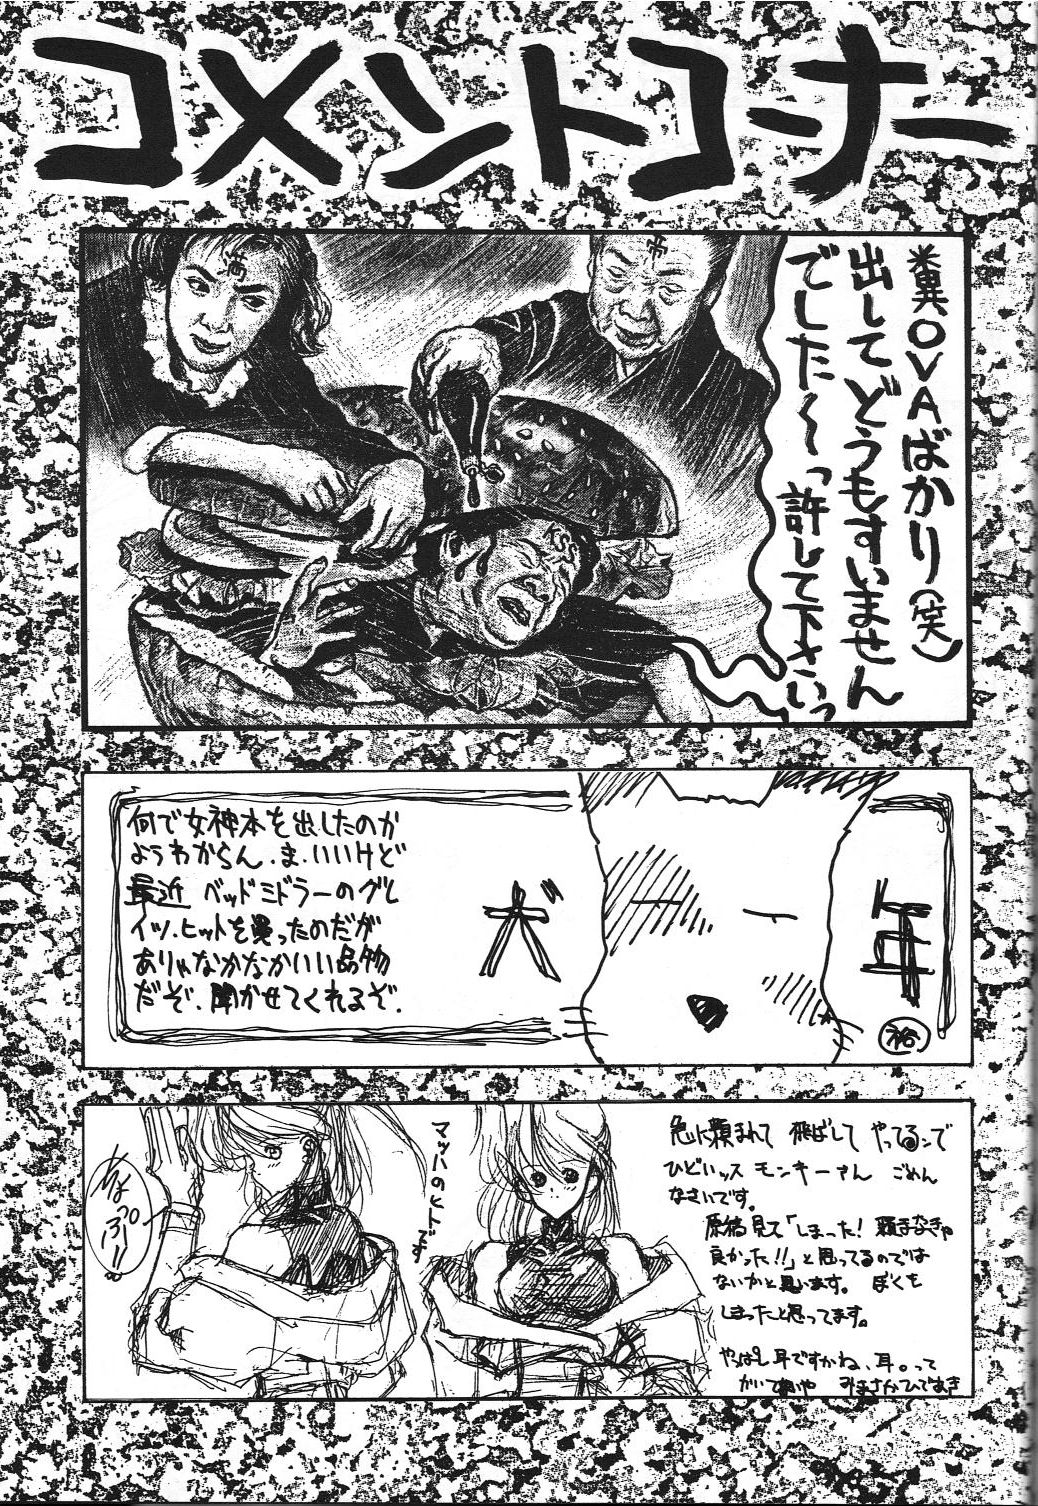 コメントコーナー
糞OVAばかり(笑)
出してどうもすいません
でした〜〜っ許して下さいっ
帝
KS
何で女神本を出したのか
ようわからん.ま.いいけど
最近 ベッドミドラーのグレ
イツ.ヒットを買ったのだが
ありゃなかなかいい品物
だぞ.聞かせてくれるぞ.
マッハのヒトです
急に頼まれて 飛ばして やってるンで
ひどいッス モンキーさん ごめん
なさいです。
原稿見て「しまった! 頼まなきゃ
良かった!!」と思ってるのでは
ないかと思います。 ぼくも
しまったと思ってます。
やっぱし耳ですかね、耳。って
みまさかひであき